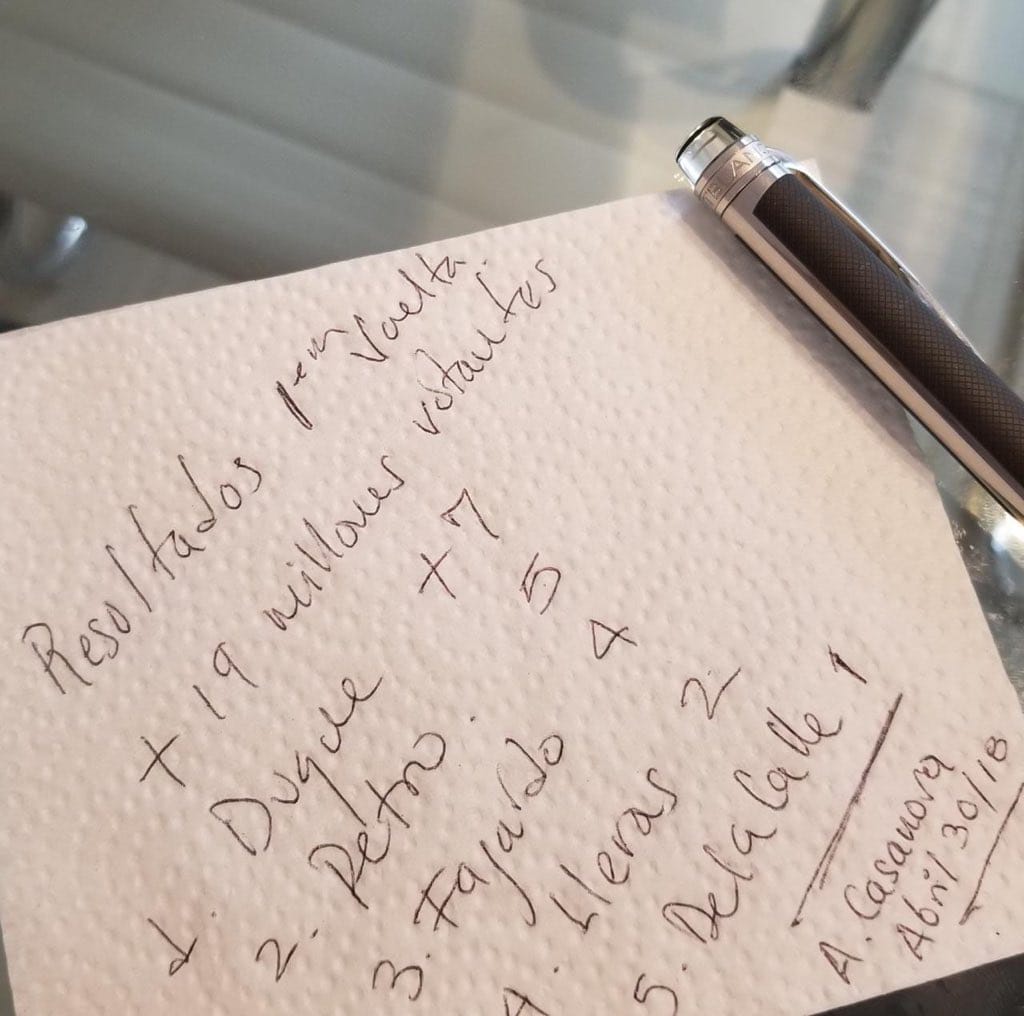 Resultados
Vuelta
+ 19 millones votantes
1. Duque +7
2. Petro. 5
3. Fajardo 4
4. Lleras 2
5. De la Calle 1
A. Casanova
Abril 30/18